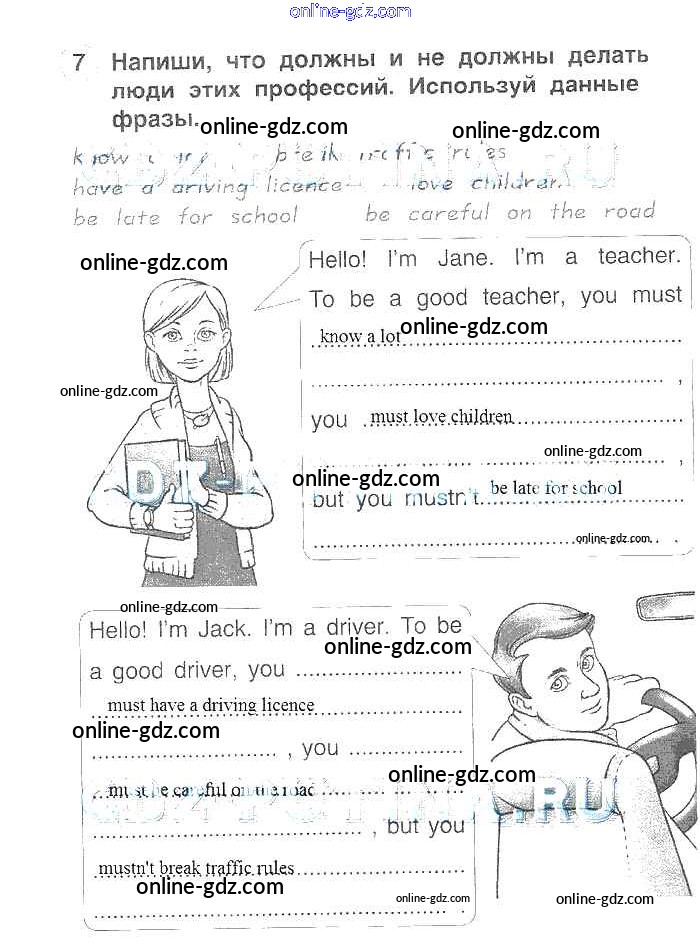 online-gdz.com
7 Напиши, что должны и не должны делать
люди этих профессий. Используй данные
фразы.
online-gdz.com
online-gdz.com
know rules
have a driving licence love children
be late for school be careful on the road
online-gdz.com
Hello! I'm Jane. I'm a teacher.
To be a good teacher, you must
know a lot
online-gdz.com
online-gdz.com
,
you must love children
online-gdz.com
,
online-gdz.com
but you mustn't be late for school
online-gdz.com
online-gdz.com
Hello! I'm Jack. I'm a driver. To be
online-gdz.com
a good driver, you
must have a driving licence
online-gdz.com
, you
online-gdz.com
must be careful on the road
, but you
mustn't break traffic rules
online-gdz.com
online-gdz.com
online-gdz.com